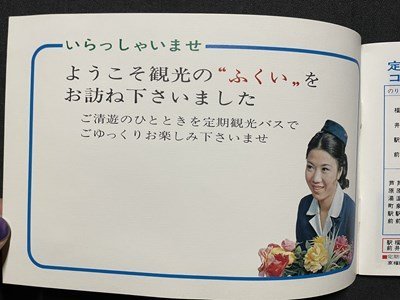 いらっしゃいませ
ようこそ観光の“ふくい„を
お訪ね下さいました
ご清遊のひとときを定期観光バスで
ごゆっくりお楽しみ下さいませ
定
コ
のり
福
井
駅
前
芦芦
原原
湯温
町泉
駅駅
前前
駅福
前井
■定期
京福